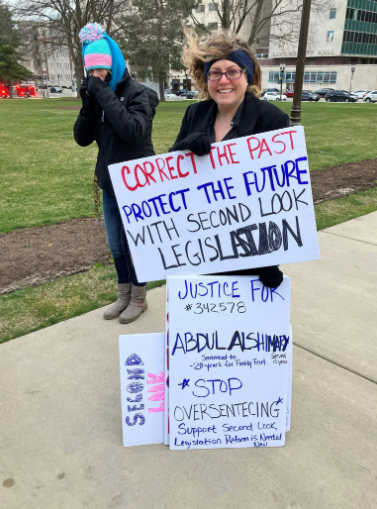 CORRECT THE PAST
PROTECT THE FUTURE
WITH SECOND LOOK
LEGISLATION
JUSTICE FOR
#342578
ABDUL ALSHIMARY
Sentenced to
-28 years for Family Fight
Served
STOP
OVERSENTECING
Support Second Look
Legislation Reform is Needed
Now!
SECOND
LOOK